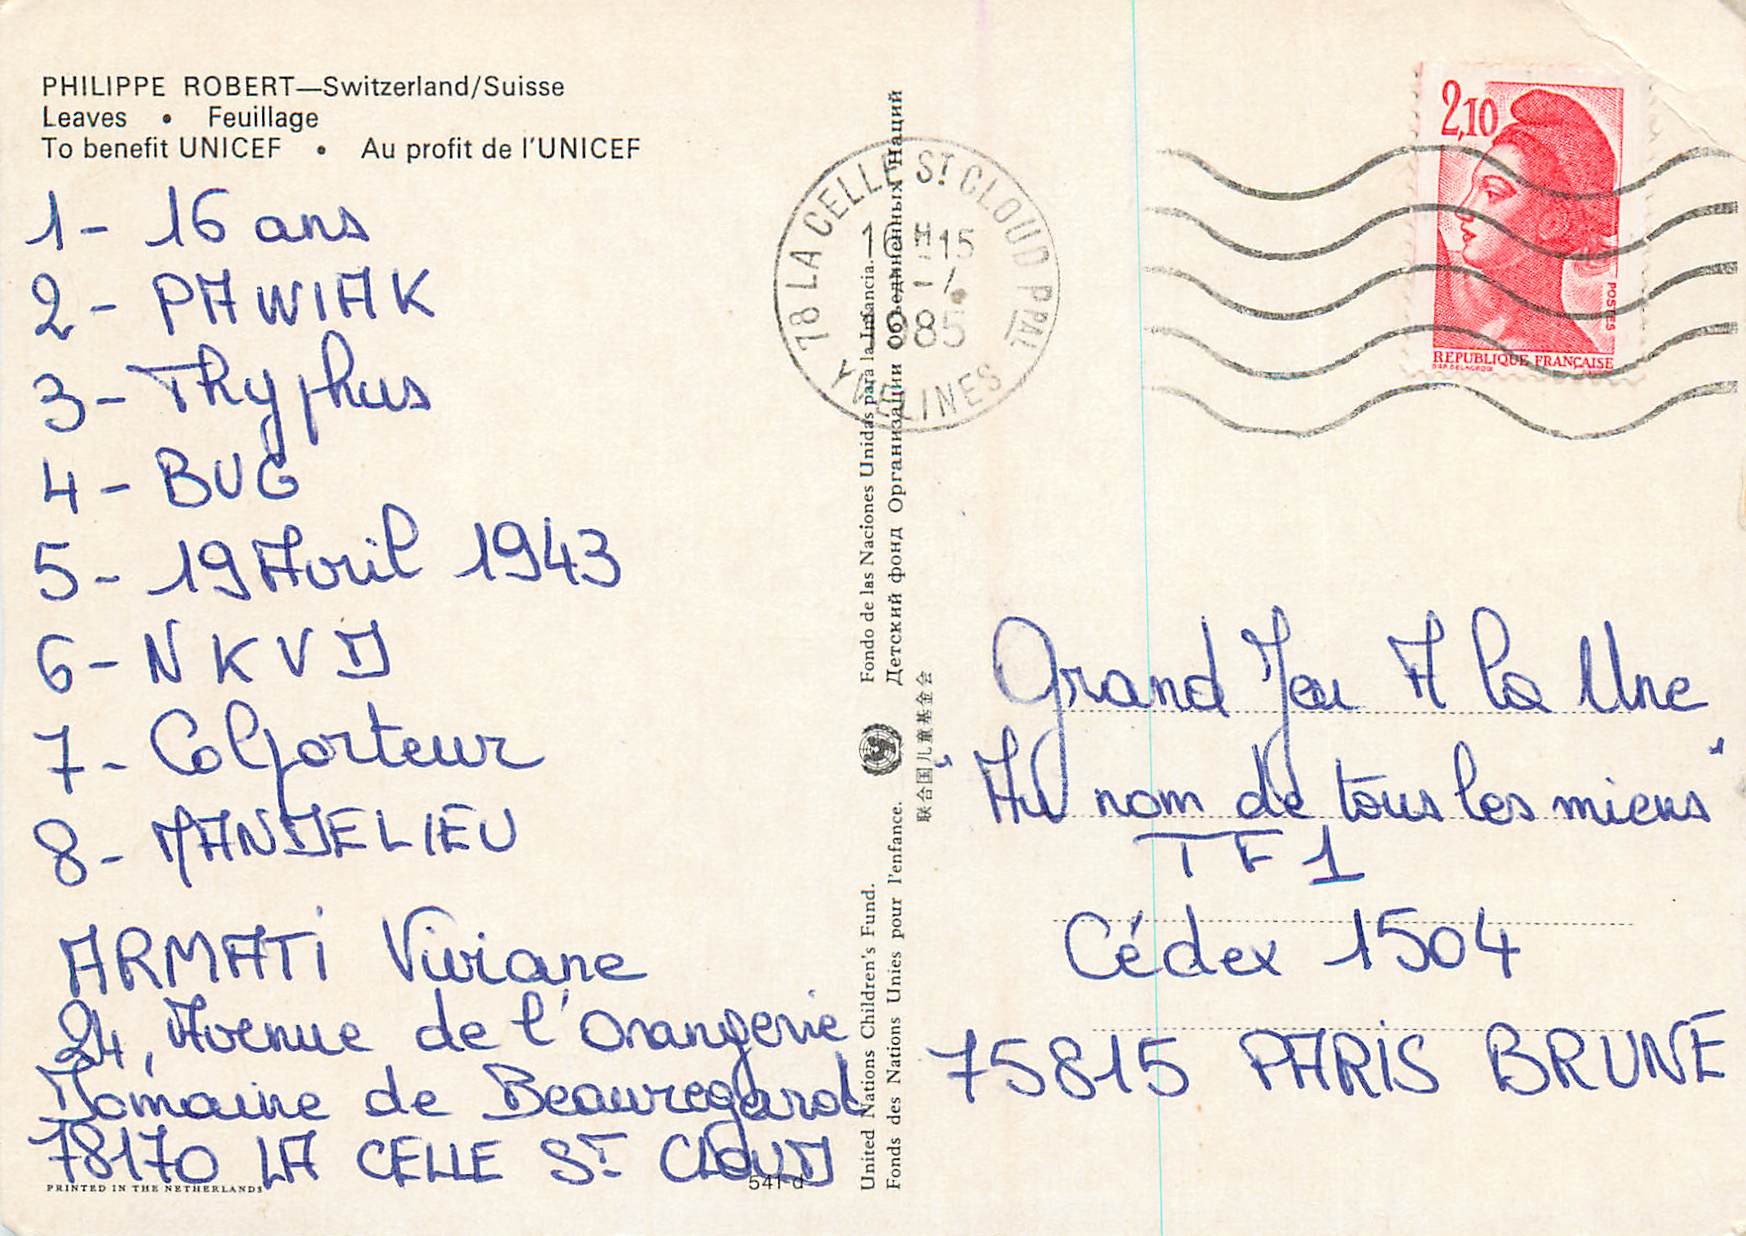 PHILIPPE ROBERT—Switzerland/Suisse
Leaves • Feuillage
To benefit UNICEF • Au profit de l'UNICEF
1- 16 ans
2- PAWIAK
3- Thyphus
4- BUG
5- 19 Avril 1943
6- NKVD
7- Colporteur
8- MANDELIEU
ARMATI Viviane
24, Avenue de l'Orangerie
Domaine de Beauregard
78170 LA CELLE ST CLOUD
PRINTED IN THE NETHERLANDS
541 d
United Nations Children's Fund.
Fonds des Nations Unies pour l'enfance.
Fondo de las Naciones Unidas para la Infancia.
Детский фонд Организации Объединенных Наций
联合国儿童基金会
78 LA CELLE ST CLOUD PPAL
16 H 15
1985
YVELINES
2,10
POSTES
REPUBLIQUE FRANÇAISE
Grand Jeu A la Une
"Au nom de tous les miens"
TF1
Cédex 1504
75815 PARIS BRUNE